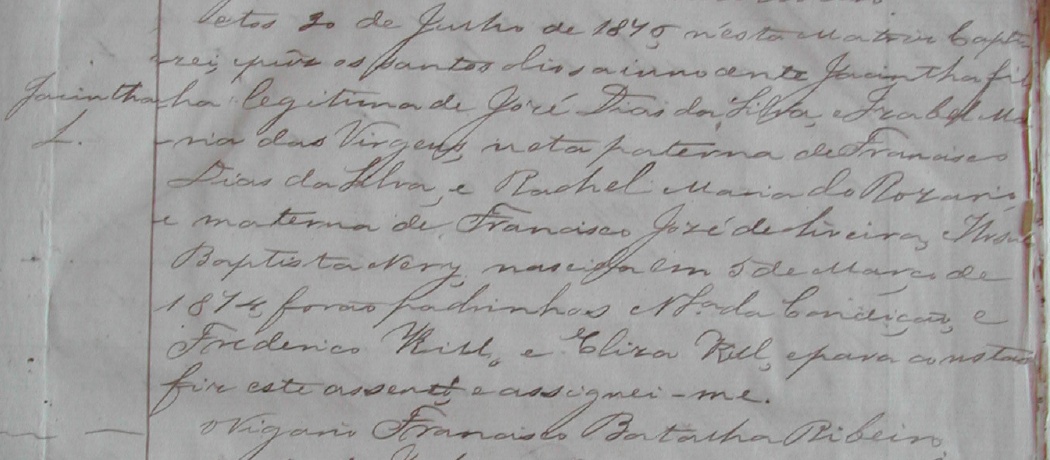 etos 20 de Junho de 1875, nésta Matriz bapti-
rei, e puz os santos olios a innocente Jacintha fi-
Jacintha
lha legitima de José Dias da Silva, e Izabel Ma-
L.
-ria das Virgens, neta paterna de Francisco
Dias da Silva, e Rachel Maria do Rozario,
e materna de Francisco José de Oliveira,
Baptista Nery, nascida em 5 de Março de
1874, forão padrinhos Nª. Sª. da Conceição, e
Frederico Kill, e Eliza Kill, e para constar
fiz este assento, e assignei-me.
O Vigario Francisco Batalha Ribeiro